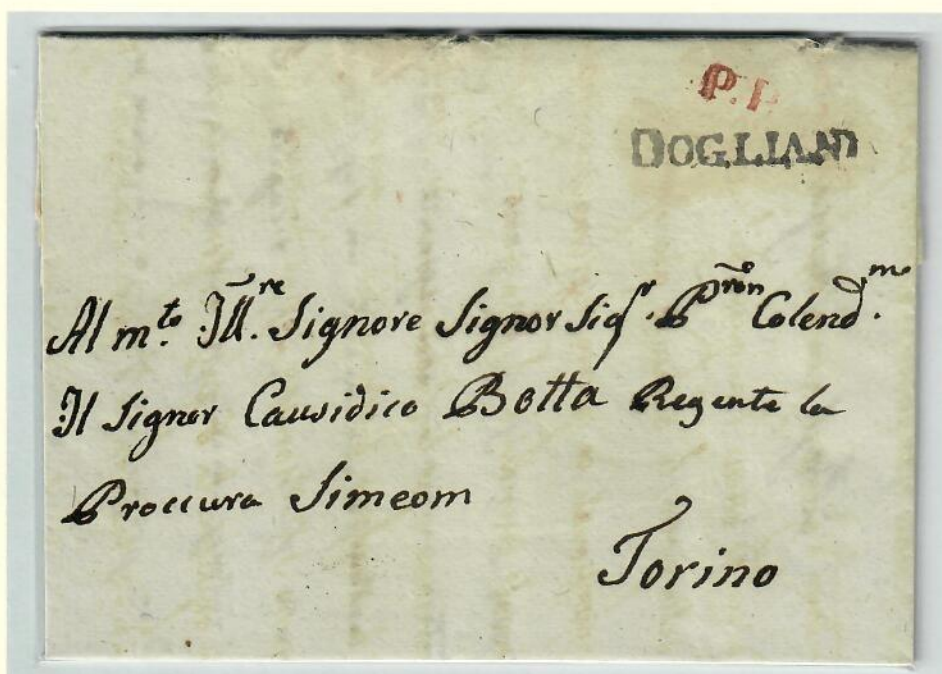 P.P.
DOGLIANI
Al m.to Ill.re Signore Signor Sig.r P̃ron Colend.mo
Il Signor Causidico Botta Regente la
Proccura Simeom
Torino